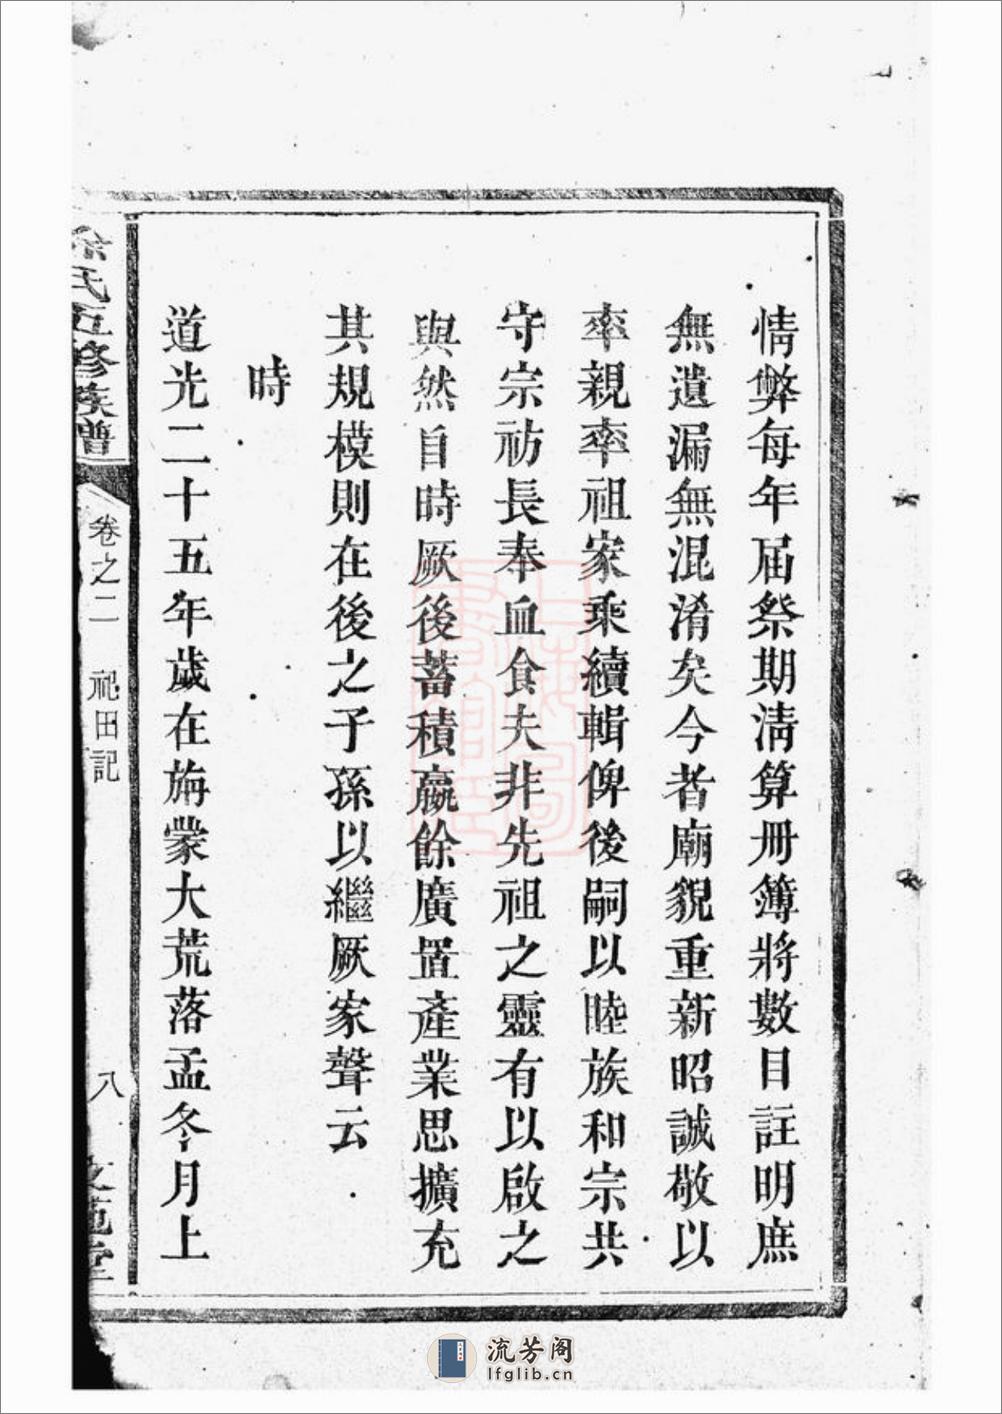 情弊每年屆祭期淸算冊簿將數目註明庶
無遺漏無混淆矣今者廟貌重新昭誠敬以
率親率祖家乘續輯俾後嗣以睦族和宗共
守宗祊長奉血食夫非先祖之靈有以啟之
與然自時厥後蓄積贏餘廣置產業思擴充
其規模則在後之子孫以繼厥家聲云
時
道光二十五年歲在旃蒙大荒落孟冬月上
徐氏五修族譜
卷之二 祀田記
八
文苑堂
流芳阁
lfglib.cn